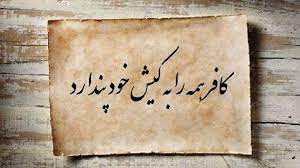 کافر همه را به کیش خود پندارد